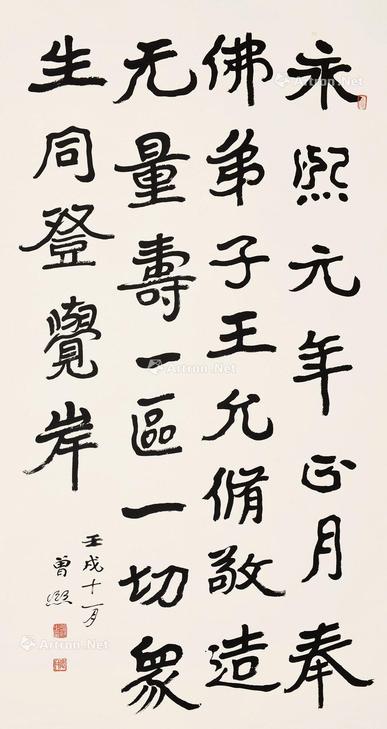 永熙元年正月奉
佛弟子王允脩敬造
无量壽一區一切眾
生同登覺岸
壬戌十一月
曾熙
Artron.Net
Artron.Net
Artron.Net